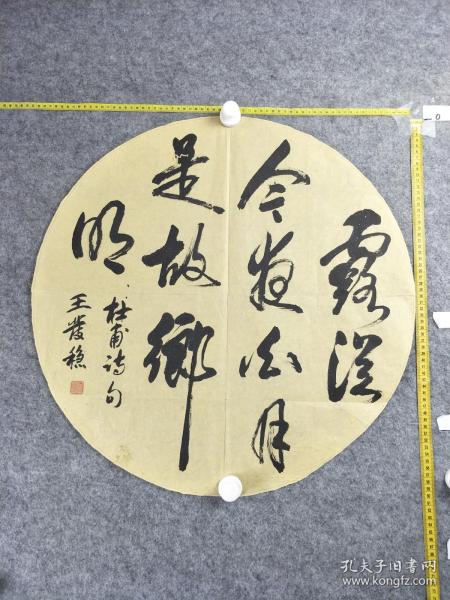 露從
今夜白月
是故鄉
明
杜甫诗句
王發
孔夫子旧书网
www.kongfz.com